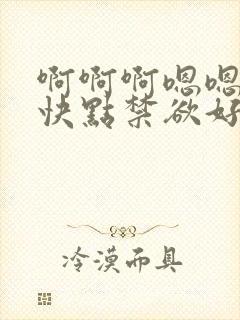 啊啊啊嗯嗯
快點禁欲好
冷漠面具